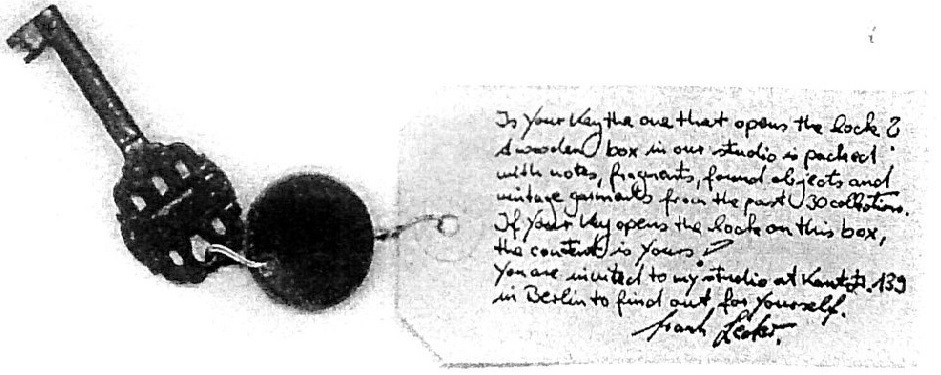 i
Is your key the one that opens the lock?
A wooden box in our studio is packed
with notes, fragments, found objects and
vintage garments from the past 30 collections.
If your key opens the lock on this box,
the content is yours!
You are invited to my studio at Kantstr. 139
in Berlin to find out for yourself.
Frank Leder.